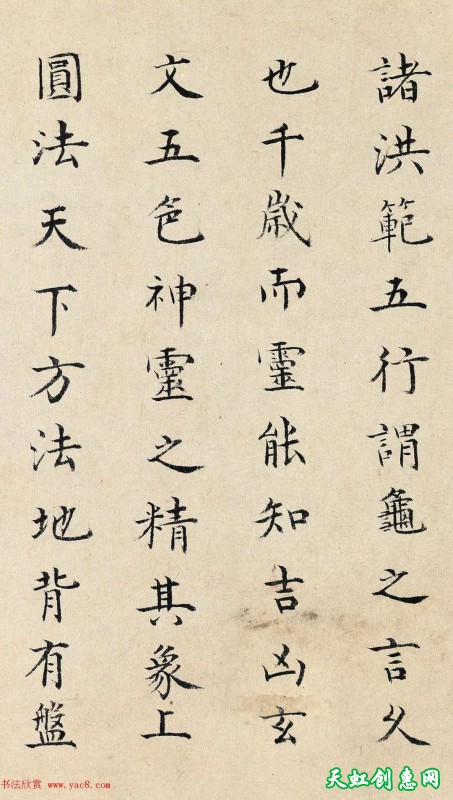 諸洪範五行謂龜之言久
也千歲而靈能知吉凶玄
文五色神靈之精其象上
圓法天下方法地背有盤
书法欣赏 www.yac8.com
天虹创惠网